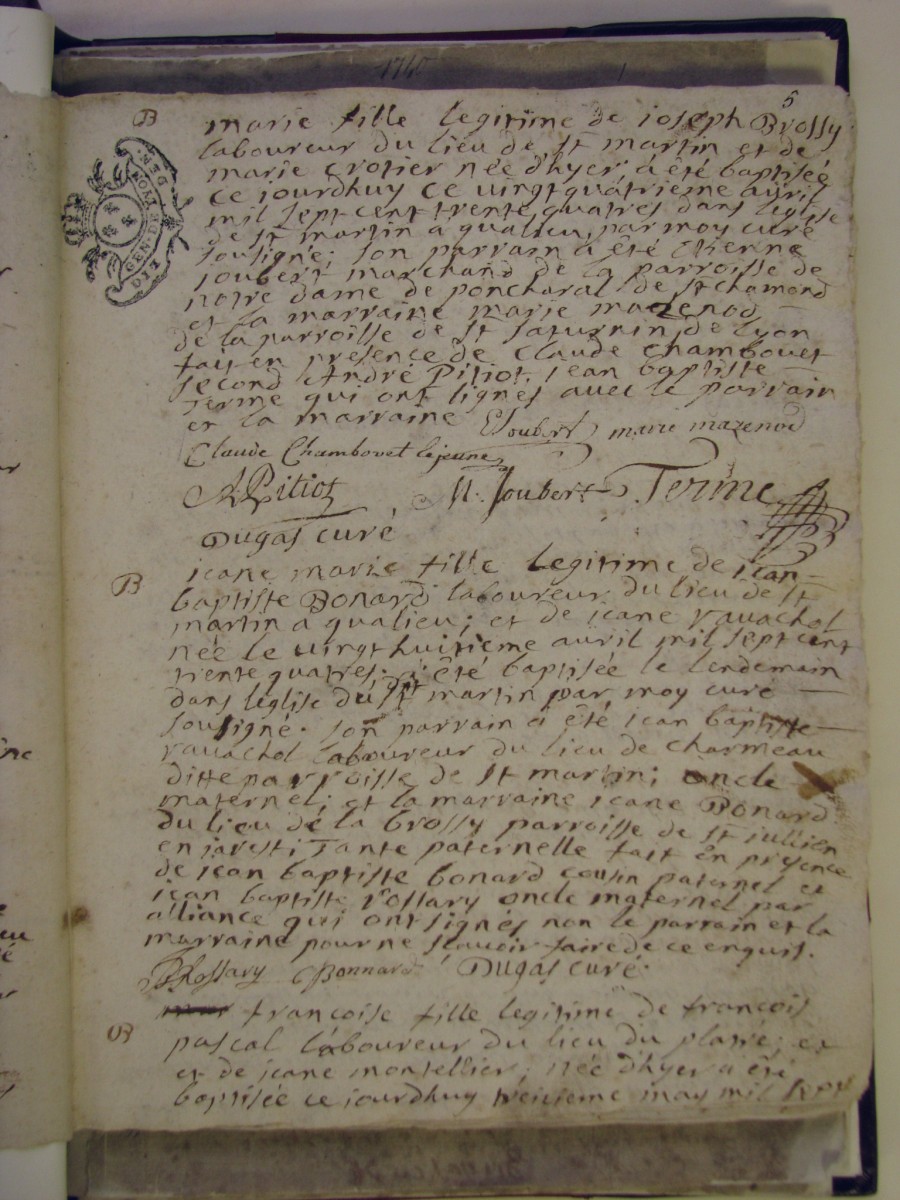 1740
5
B
marie fille legitime de ioseph Brossy
laboureur du lieu de st martin et de
marie crotier née d'hyer à été baptisée
ce iourdhuy ce vingtquatrieme avril
mil sept cent trente quatres dans leglise
de st martin a qualieu, par moy curé
sousigné; son parrain à été etienne
ioubert marchand de la parroisse de
notre dame de poncharal de st chamond
et la marraine marie mazenod
de la parroisse de st saturnin de Lyon
fait en presence de Claude Chambovet
second André Pitiot, iean baptiste
terme qui ont signés avec le parrain
et la marraine EJoubert marie mazenod
Claude Chambovet lejeune
APitiot M. Joubert Terme
Dugas curé
B
icane marie fille legitime de iean
baptiste Bonard laboureur du lieu de st
martin a qualieu; et de ieane ravachol
née le vingthuitieme avril mil sept cent
trente quatres à été baptisée le lendemain
dans leglise du st martin par moy curé
sousigné. son parrain à été iean baptiste
ravachol laboureur du lieu de charmeau
ditte parroisse de st martin; oncle
maternel; et la marraine ieane Bonard
du lieu de la brossy parroisse de st iullien
en iaresti Tante paternelle fait en presence
de iean baptiste bonard cousin paternel et
iean baptiste rossary oncle maternel par
alliance qui ont signés non le parrain et la
marraine pour ne sçavoir faire de ce enquis.
Rossary Bonnard Dugas curé.
B
francoise fille legitime de francois
pascal laboureur du lieu du platre; et
et de ieane montellier; née d'hyer a été
baptisée ce iourdhuy treizieme may mil sept